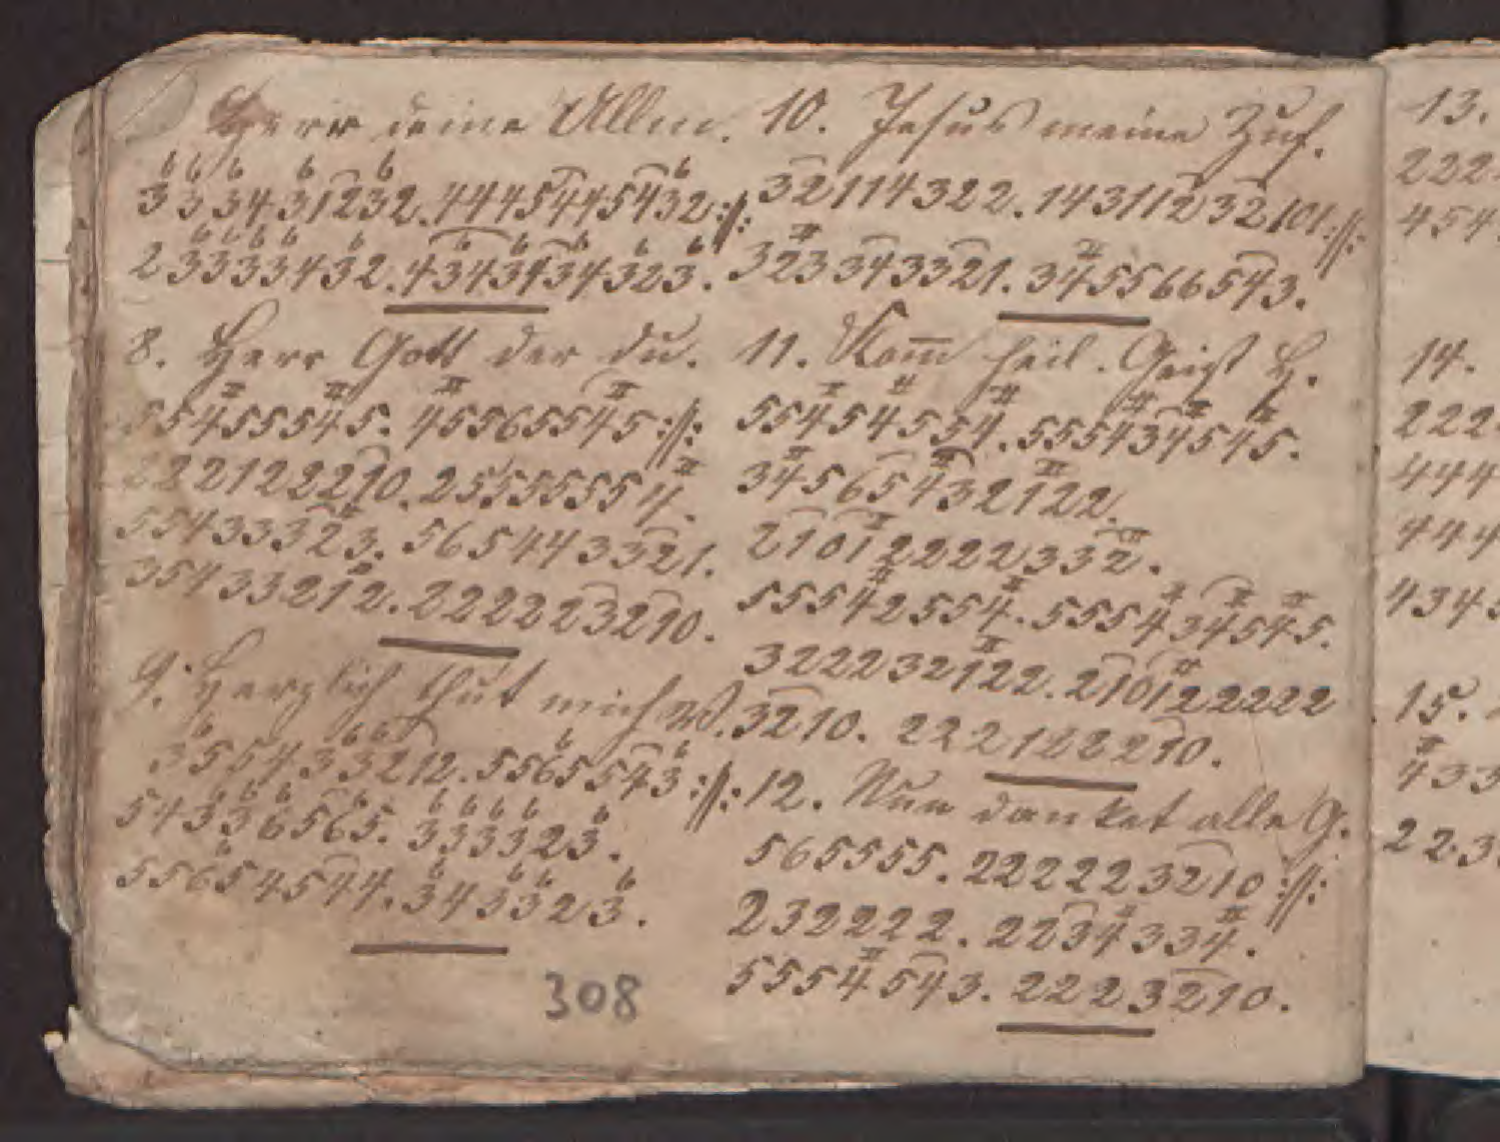 Herr deine Allm.
333431232.444544545432:/:
2333343 2.434343434323.
8. Herr Gott der du.
554555545. 455655545:/:
2221222210.255555554.
55433323. 5654433321.
35433212.22222232210.
9. Herzlich thut mich
3554333212.55655543:/:
5433656 5. 333323.
55654544.3433323.
308
10. Jesus meine Zuf.
32114322.14311232101:/:
32334 3321.3455665 43.
11. Kom̄ heil. Geist H.
55454554.5554345 45.
345654321 22.
210122223 32.
55542554.55543454 5.
322232122.2101222222
3210. 22212 2210.
12. Nun danket alle G.
565555.2222232 10:/:
232222.2234334.
5554543.2223210.
13.
222
454
14.
222
444
444
434
15.
433
223